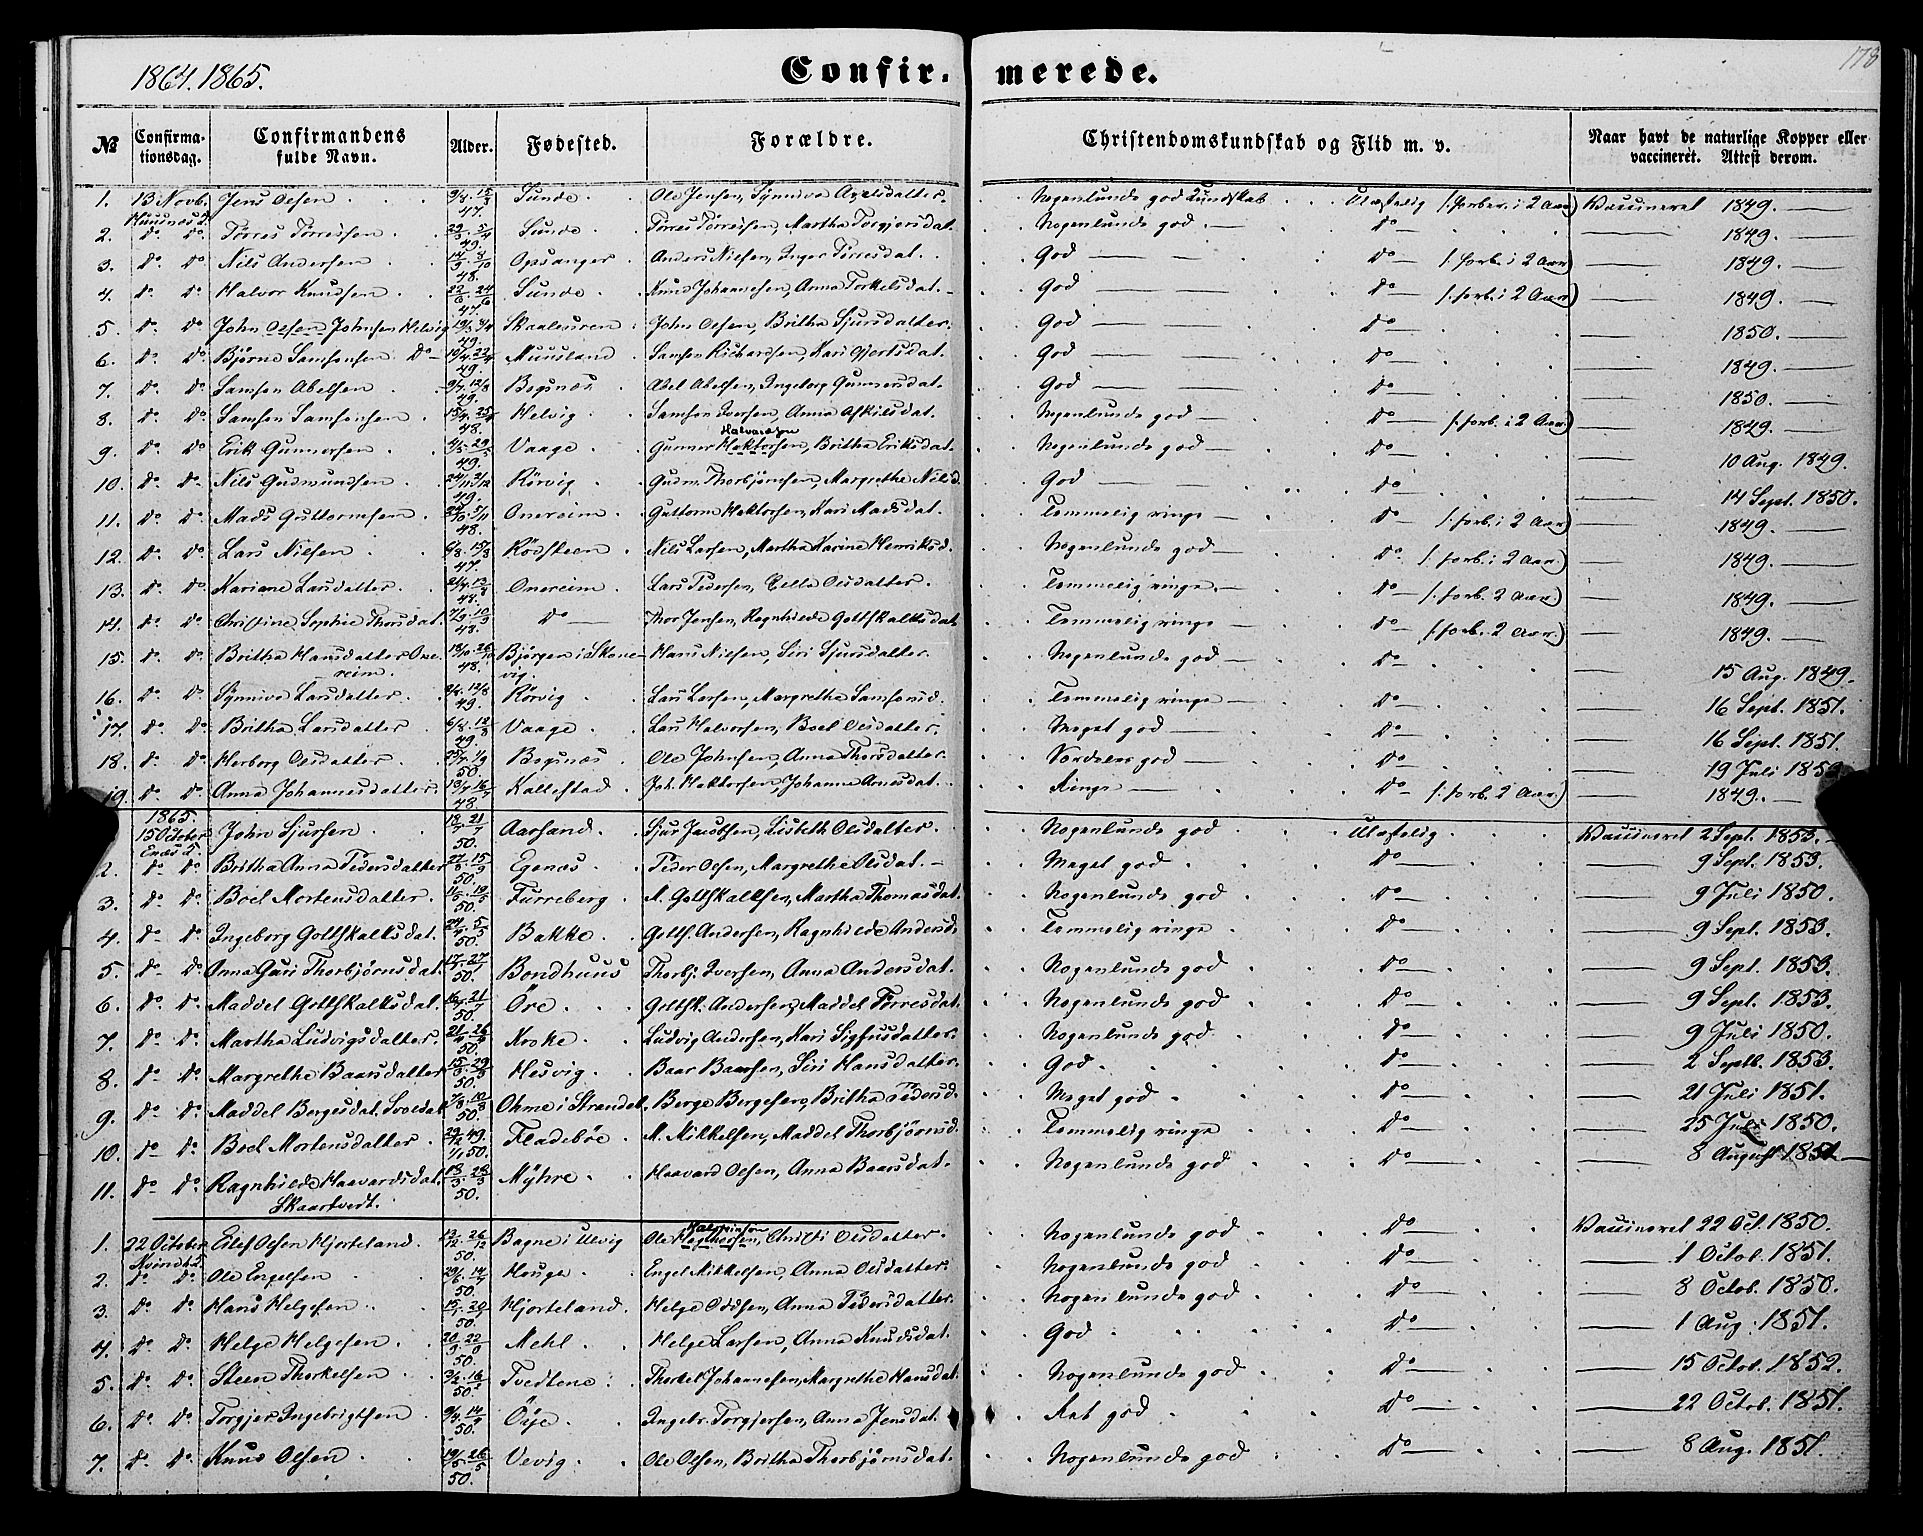 1864. 1865.
Confirmerede.
178
№ Confirmationsdag. Confirmandens fulde Navn. Alder. Fødested. Forældre. Christendomskundskab og Flid m. v. Naar havt de naturlige Kopper eller vaccineret. Attest derom.
1. 13 Novb. Jens Olsen 47. Sunde. Ole Jensen, Synniva Axelsdatter. Nogenlunde god Kundskab Ulastelig /: forber. i 2 Aar) Vaccineret 1849.
Huusnæs S.
2. Do Do Tørres Tørresen 49. Sunde. Tørres Tørresen, Martha Torgjersdat. Nogenlunde god. Do 1849.
3. Do Do Nils Andersen 48. Opsanger. Anders Nielsen, Inger Tørresdat. God Do /: forb. i 2 Aar) 1849.
4. Do Do Halvor Knudsen 47. Sunde. Knud Johannesen, Anna Torkelsdat. God Do /: forb. i 2 Aar) 1849.
5. Do Do John Olsen Johnsen Helvig 49. Skaaleuren. John Olsen, Britha Sjursdatter. God Do 1850.
6. Do Do Bjørne Samsonsen Do 49. Muusland. Samson Richardsen, Kari Gjertsdat. God Do 1849.
7. Do Do Samson Abelsen 49. Bogsnæs. Abel Abelsen, Ingeborg Gunnarsdat. God Do 1850.
8. Do Do Samson Samsonsen 48. Helvig. Samson Iversen, Anna Askilsdat. Nogenlunde god Do /: forb. i 2 Aar) 1849.
Halvardsen
9. Do Do Erik Gunnarsen 49. Vaage. Gunnar Haktorsen, Britha Eriksdat. Nogenlunde god Do 10 Aug. 1849.
10. Do Do Nils Gudmundsen 49. Rörvig. Gudm. Thorbjörnsen, Margrethe Nilsd. God Do 14 Sept. 1850.
11. Do Do Mads Guttormsen 48. Onereim. Guttorm Haktorsen, Kari Madsdat. Temmelig ringe Do /: forb. i 2 Aar) 1849.
12. Do Do Lars Nielsen 47. Rödsteen. Nils Larsen, Martha Karine Henriksd. Nogenlunde god Do /: forb. i 2 Aar.) 1849.
13. Do Do Mariane Larsdatter 48. Onereim. Lars Pedersen, Olsdatter. Temmelig ringe. Do /: forb. 2 Aar.) 1849.
14. Do Do Christine Sophie Thorsdat. 48. Do Thor Jensen, Ragnhilde Gottskalksdat. Temmelig ringe Do /: forb. 2 Aar.) 1849.
15. Do Do Britha Hansdatter One- 48. Bjørgen i Skone- Hans Nielsen, Siri Sjursdatter. Nogenlunde god Do 15 Aug. 1849.
reim. vig.
16. Do Do Synniva Larsdatter. 49. Rörvig. Lars Larsen, Margretha Samsonsd. Temmelig ringe Do 16 Sept. 1851.
17. Do Do Britha Larsdatter 49. Vaage. Lars Halvorsen, Boel Olsdatter. Meget god Do 16 Sept. 1851.
18. Do Do Herborg Olsdatter. 50. Bogsnæs. Ole Johnsen, Anna Thorsdatter. Særdeles god Do 19 Juli 1853.
19. Do Do Anna Johannesdatter 48. Kallestad. Joh. Haktorsen, Johanna Arnesdat. Ringe Do /: forb. 2 Aar.) 1849.
1865.
15 October John Sjursen 50. Aarsand. Sjur Jacobsen, Lisbeth Olsdatter. Nogenlunde god Ulastelig Vaccineret 2 Sept. 1853.
Enæs S.
2. Do Do Britha Anna Pedersdatter 50. Egenæs. Peder Olsen, Margrethe Olsdat. Meget god Do 9 Sept. 1853.
3. Do Do Boel Mortensdatter. 50. Furreberg. M. Gottskalksen, Martha Thomasdat. Nogenlunde god Do 9 Juli 1850.
4. Do Do Ingeborg Gottskalksdat. 50. Bakke. Gottsk. Andersen, Ragnhilde Andersd. Temmelig ringe Do 9 Sept. 1853.
5. Do Do Anna Guri Thorbjørnsdat. 50. Bondhuus Thorbj. Iversen, Anna Andersdat. Nogenlunde god Do 9 Sept. 1853.
6. Do Do Maddel Gottskalksdat. 50. Öre. Gottsk. Andersen, Maddel Tørresdat. Nogenlunde god Do 9 Sept. 1853.
7. Do Do Martha Ludvigsdatter. 50. Kroke. Ludvig Andersen, Kari Sigfusdatter. Nogenlunde god Do 9 Juli 1850.
8. Do Do Margrethe Baarsdatter 50. Hesvig. Baar Baarsen, Siri Hansdatter. God. Do 2 Septb. 1853.
9. Do Do Maddel Børgesdat. 50. Ohme i Strandeb. Børge Børgesen, Britha Pedersd. Meget god Do 21 Juli 1851.
10. Do Do Boel Mortensdatter 49. 50. Fladeböe. M. Mikkelsen, Maddel Thorbjørnsd. Temmelig ringe Do 25 Juli 1850.
11. Do Do Ragnhilde Haavardsdat. 50. Myhre. Haavard Olsen, Anna Baarsdat. Nogenlunde god Do 8 August 1851
Skaartvedt.
Halsteinsen
1. 22 October Eilef Olsen Hjorteland. 50. Bagne i Ulvig Ole Hagthorsen, Christi Olsdatter. Nogenlunde god Do Vaccineret 22 Oct. 1850.
Kvindh. S.
2. Do Do Ole Engelsen 50. Houge. Engel Mikkelsen, Anna Olsdatter. Nogenlunde god Do 1 Octob. 1851.
3. Do Do Hans Helgesen 50. Hjorteland. Helge Oddsen, Anna Pedersdatter. Nogenlunde god Do 8 Octob. 1850.
4. Do Do Helge Helgesen 50. Mehl. Helge Larsen, Anna Knudsdat. God Do 1 Aug. 1851.
5. Do Do Steen Thorkelsen 50. Tvedtene. Thorkel Johannesen, Margrethe Hansdat. Nogenlunde god Do 15 Octob. 1852.
6. Do Do Torgjer Ingebrigtsen 50. Öye. Ingebr. Torgjersen, Anna Jensdat. god Do 22 Octob. 1851.
7. Do Do Knud Olsen 50. Vevig. Ole Olsen, Britha Thorbjørnsdat. Nogenlunde god Do 8 Aug. 1851.